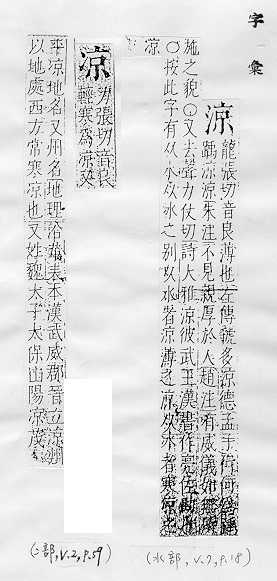 字彙
涼
龍張切音良薄也左傳虢多涼德孟子
踽涼涼朱注不見親厚於人趙注有威儀如
施之貌○又去聲力仗切詩大雅涼彼武王漢書作亮
○按此字有从水从冰之別以水者涼薄之涼从冰者寒涼之
涼
凉
力張切音良
輕寒為凉又
平凉地名又州名地理沿革表本漢武威郡晉立凉州
以地處西方常寒凉也又姓魏太子太保山陽凉茂
(水部, V.7, P.18)
(冫部, V.2, P.59)